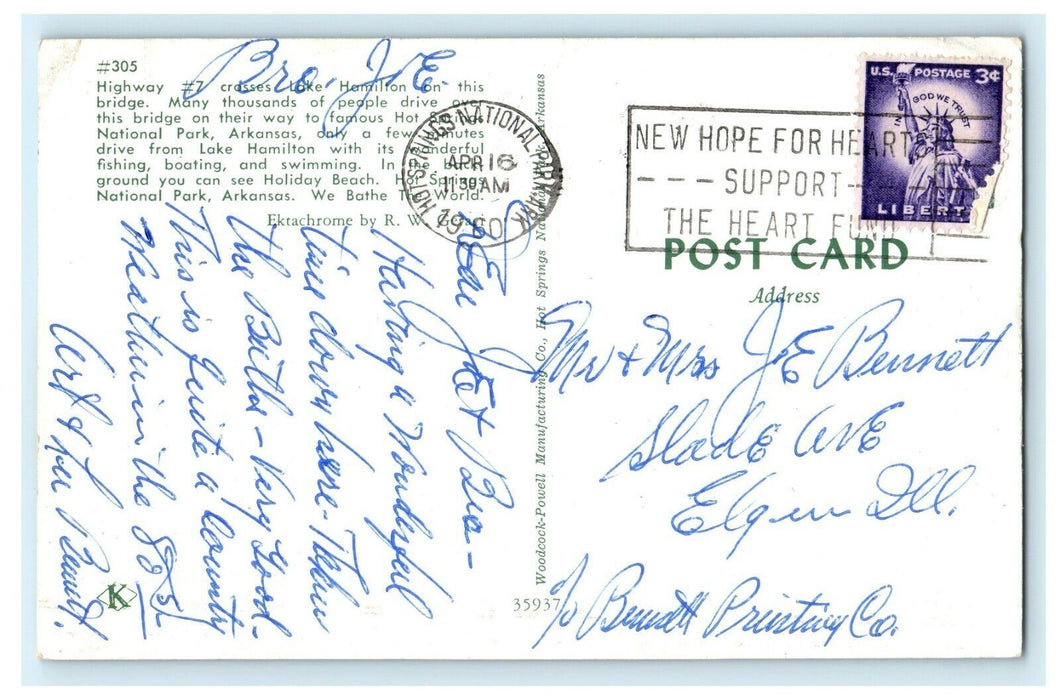 #305
Highway #7 crosses Lake Hamilton on this
bridge. Many thousands of people drive over
this bridge on their way to famous Hot Springs
National Park, Arkansas, only a few minutes
drive from Lake Hamilton with its wonderful
fishing, boating, and swimming. In the back
ground you can see Holiday Beach. Hot Springs
National Park, Arkansas. We Bathe The World.
Ektachrome by R. W.
Bro. J. E.
Dear J E & Bea -
Having a Wonderful
time down here - Takin
the Baths - Very Good -
This is quite a County
Weather in the 80s
Art & Lu Bennett.
K
Woodcock-Powell Manufacturing Co., Hot Springs National Park, Arkansas
35937
HOT SPRINGS NATIONAL PARK
APR 16
11 30 AM
1960
ARK
NEW HOPE FOR HEART
--- SUPPORT ---
THE HEART FUND
U.S. POSTAGE 3¢
IN GOD WE TRUST
LIBERTY
POST CARD
Address
Mr & Mrs J E Bennett
Slade Ave
Elgin Ill.
c/o Bennett Printing Co.